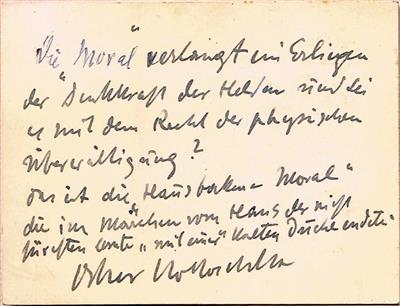 "Die Moral" verlangt ein Erliegen
der "Denkkraft der Helden und sei
es mit dem Recht der physischen
Überwältigung?
das ist die "Hausbackene Moral"
die im Märchen vom Hans der nicht
fürchten lernte "mit einer" kalten Dusche endete
Oskar Kokoschka